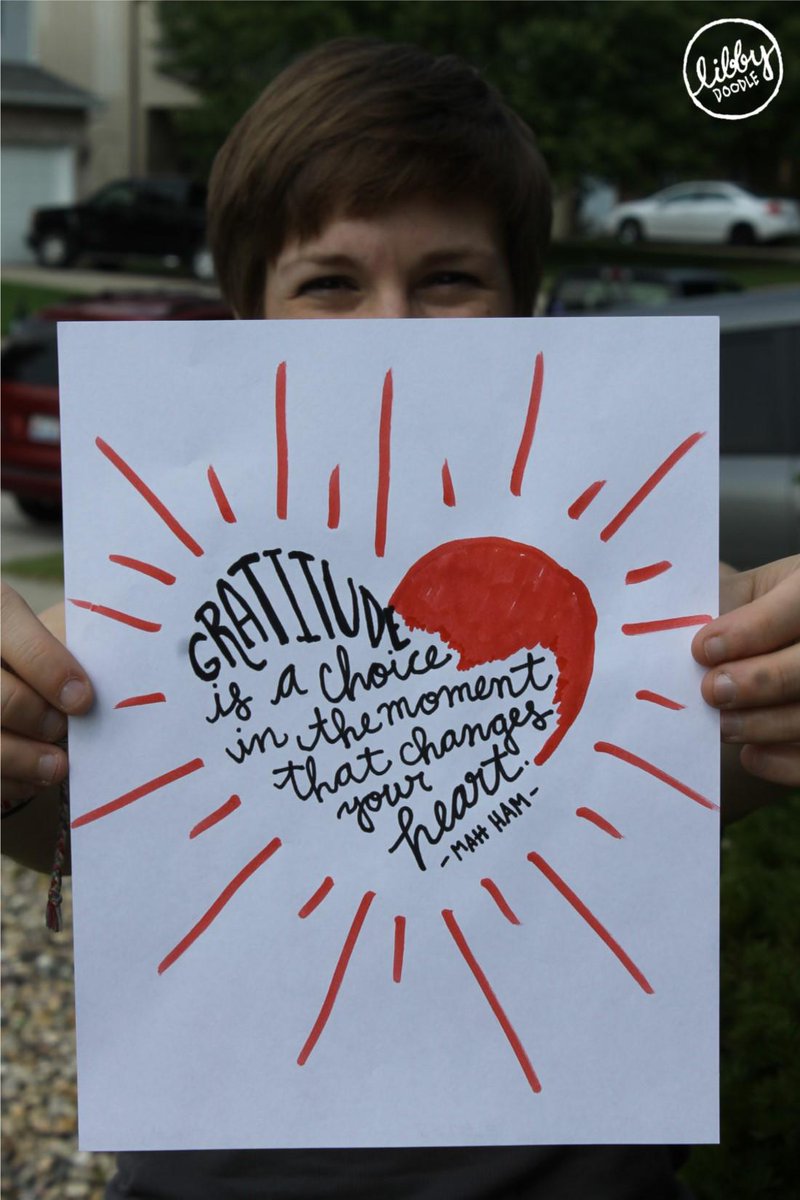 libby
DOODLE
GRATITUDE
is a choice
in the moment
that changes
your
heart.
-MAH HAM-